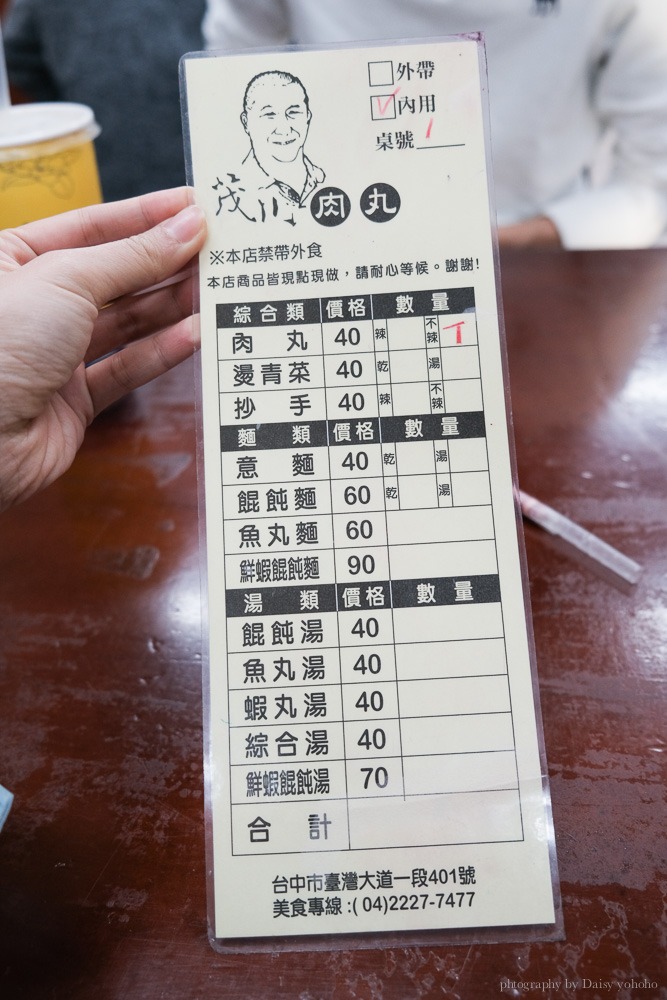 外帶
內用
桌號 1
茂川 肉丸
※本店禁帶外食
本店商品皆現點現做，請耐心等候。謝謝！
綜合類 價格 數量
肉丸 40 辣 不辣 一
燙青菜 40 乾 湯
抄手 40 辣 不辣
麵類 價格 數量
意麵 40 乾 湯
餛飩麵 60 乾 湯
魚丸麵 60
鮮蝦餛飩麵 90
湯類 價格 數量
餛飩湯 40
魚丸湯 40
蝦丸湯 40
綜合湯 40
鮮蝦餛飩湯 70
合計
台中市臺灣大道一段401號
美食專線:(04)2227-7477
ptography by Daisy yohoho